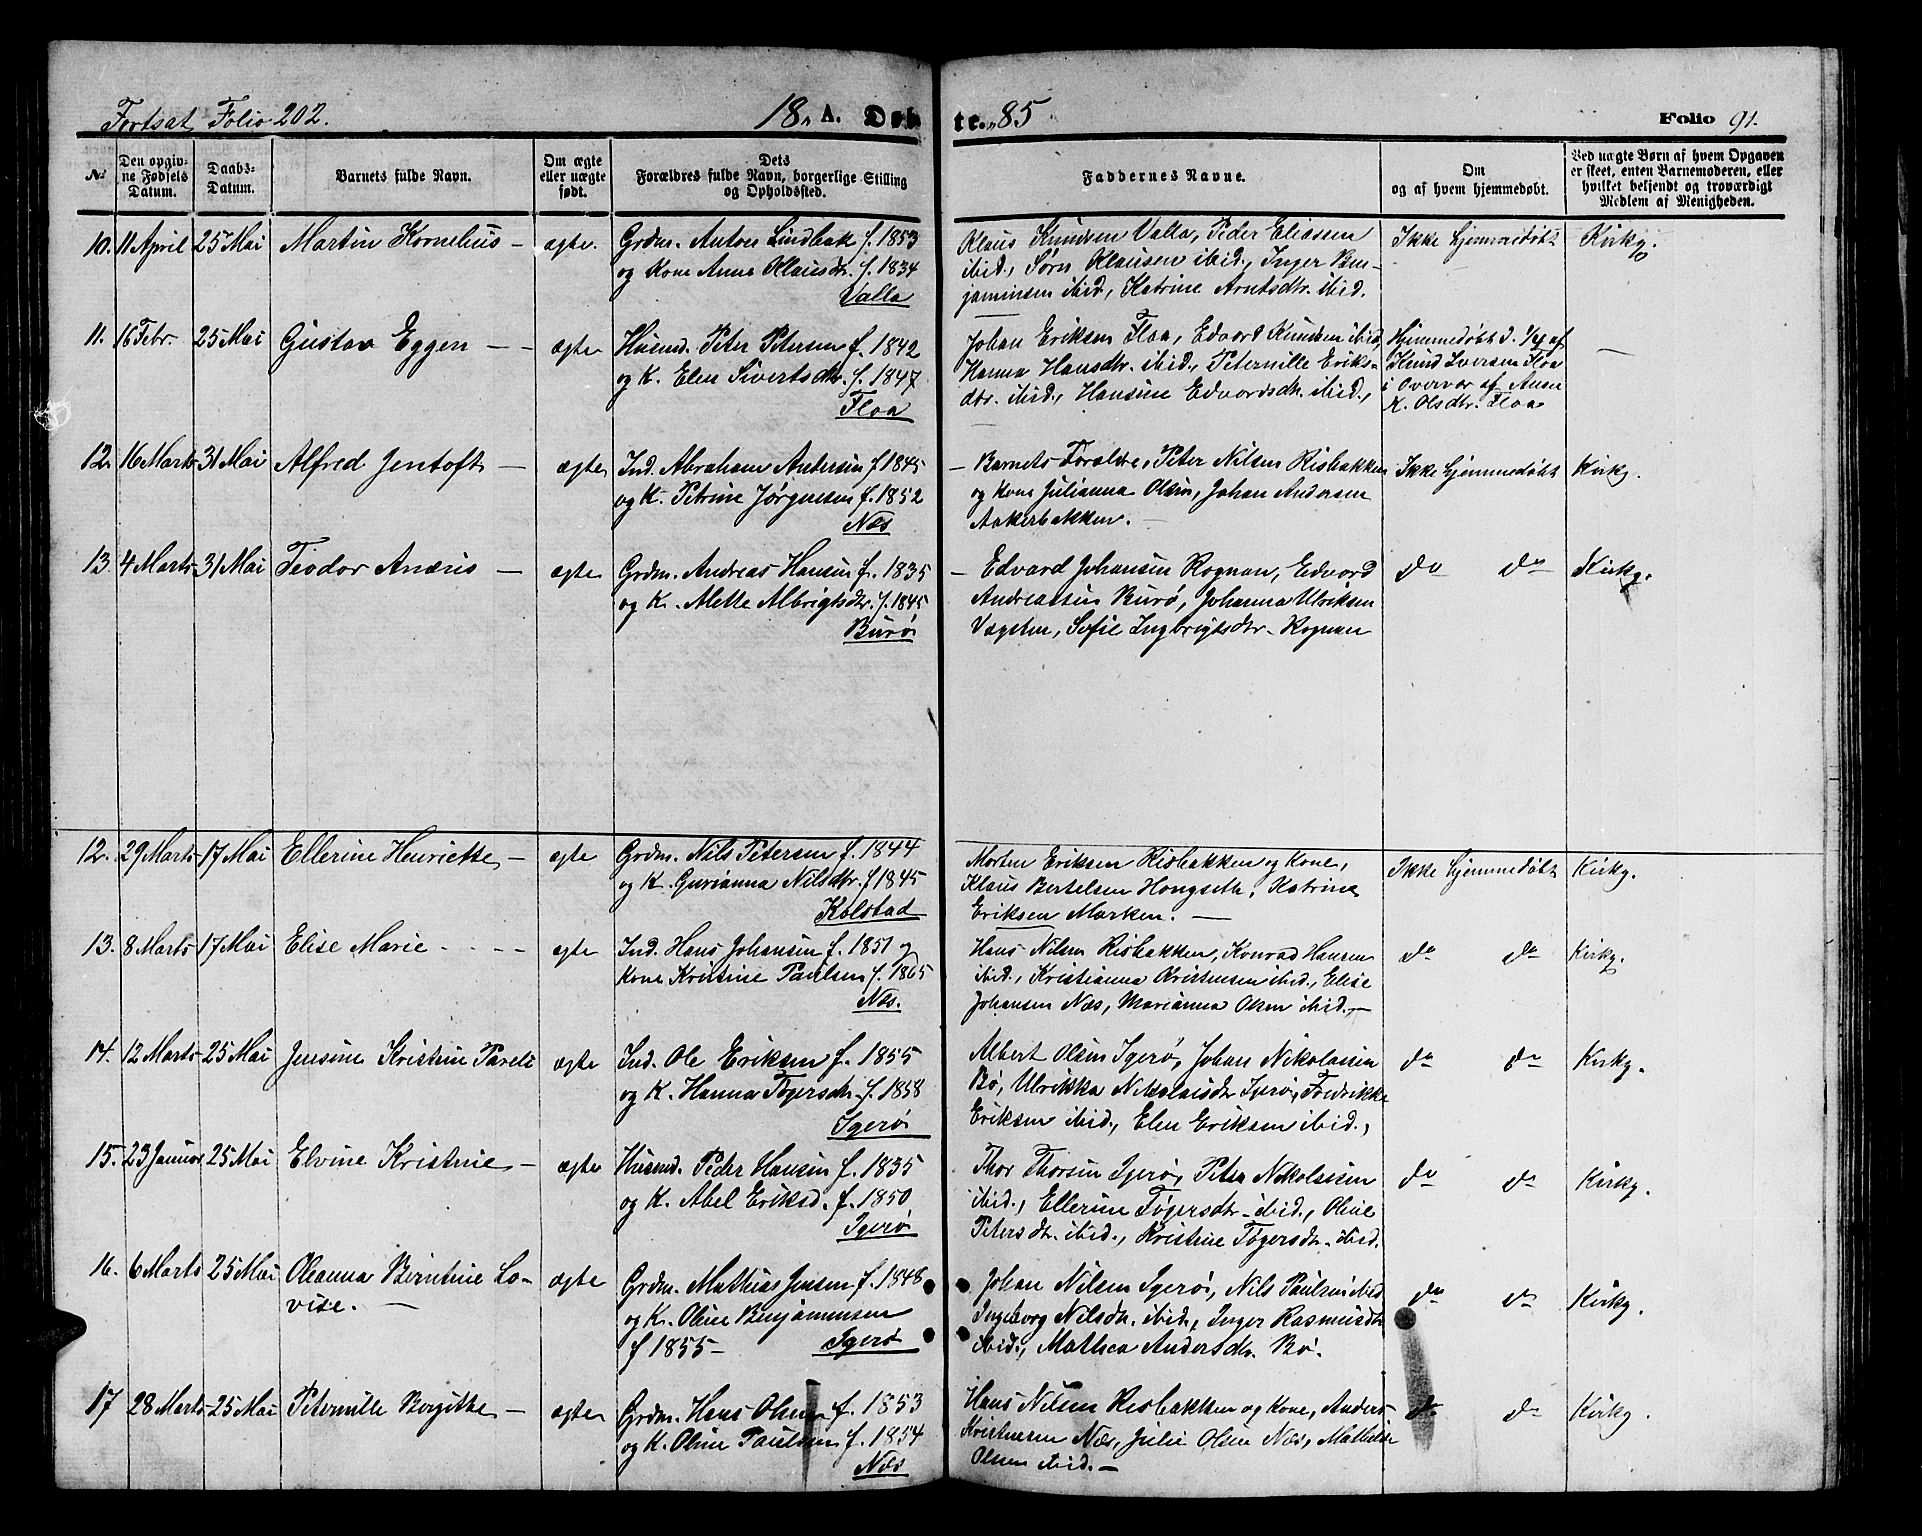 Fortsat, Folio 202.
18 A. Døbte. 85
Folio 91.
No.
Den opgivne Fødsels Datum.
Daabs-Datum.
Barnets fulde Navn.
Om ægte eller uægte født.
Dets Forældres fulde Navn, borgerlige Stilling og Opholdsted.
Faddernes Navne.
Om og af hvem hjemmedøbt.
Ved uægte Børn af hvem Opgaven er skeet, enten Barnemoderen, eller hvilket bekjendt og troværdigt Medlem af Menigheden.
10. 11 April 25 Mai Martin Kornelius - ægte. Grdm. Antoes Lindbak f. 1853
og Kone Anna Klausdr. f. 1834
Valla
Klaus Knudsen Valla, Peder Eliassen
ibid., Sørn Klausen ibid., Inger Ben-
jaminsen ibid, Katrine Arntsdtr. ibid.
Ikke hjemmedøbt
Kirkg.
11. 16 Febr. 25 Mai Gustav Eggen - - ægte Husmd. Peter Petersen f. 1842
og K. Elen Sivertsdtr. f. 1847
Floa
Johan Eriksen Floa, Edvart Knudsen ibid,
Hanna Hansdtr. ibid., Peternille Eriks-
dtr. ibid., Hansine Edvardsdtr. ibid.,
Hjemmedøbt d. 1/4 af
Knud Iversen Floa
i Overvær af Anne
K. Olsdtr. Floa
—
12. 16 Marts 31 Mai Alfred Jentoft - ægte Ind. Abraham Andersen f 1845
og K. Petrine Jørgensen f. 1852
Næs
- Barnets Forældre, Peter Nilsen Risbakken
og Kone Julianna Olsen, Johan Andersen
Aakerbakken. -
Ikke hjemmedøbt
Kirkg.
13. 4 Marts 31 Mai Teodor Anæus - ægte Grdm. Andreas Hansen f. 1835
og K. Mette Albrigtsdtr. f. 1845
Burø
- Edvard Johansen Rognan, Edvard
Andreassen Burø, Johanna Ulriksen
Vægsten, Sofie Ingbrigtsdtr. Rognan
do do
Kirkg.
12. 29 Marts 17 Mai Ellerine Henriette - ægte Grdm. Nils Petersen f. 1844
og K. Gurianna Nilsdtr. f 1845
Kolstad
Morten Eriksen Risbakken og Kone,
Klaus Bertelsen Hongseth, Katrina
Eriksen Marken. -
Ikke hjemmedøbt
Kirkg.
13. 8 Marts 17 Mai Elise Marie - - - ægte Ind. Hans Johansen f. 1851 og
Kone Kristine Paulsen f. 1865
Næs.
Hans Nilsen Risbakken, Konrad Hansen
ibid., Kristianna Kristensen ibid., Elise
Johansen Næs, Marianna Olsen ibid. -
do do
Kirkg.
14. 12 Marts 25 Mai Jensine Kristine Pareli ægte Ind. Ole Eriksen f. 1855
og K. Hanna Tøgersdtr. f. 1858
Igerø
Albert Olsen Igerø, Johan Nikolaisen
Bø, Ulrikka Nikolaisdtr Igerø, Fredrikke
Eriksen ibid., Elen Eriksen ibid.,
do do
Kirkg.
15. 23 Januar 25 Mai Elvine Kristine - ægte Husmd. Peder Hansen f. 1835
og K. Abel Eriksd. f. 1850
Igerø
Thor Thorsen Igerø, Peter Nikolaisen
ibid., Ellerine Tøgersdtr. ibid., Oline
Petersdtr. ibid., Kristine Tøgersdtr. ibid.
do do
Kirkg.
16. 6 Marts 25 Mai Oleanna Berntine Lo-
vise. -
ægte Grdm. Mathias Jensen f. 1848
og K. Oline Benjaminsen
f 1855 - Igerø
Johan Nilsen Igerø, Nils Paulsen ibid
Ingeborg Nilsdtr. ibid., Inger Rasmusdtr
ibid., Mathea Andersdtr. Bø.
do do
Kirkg.
17 28 Marts 25 Mai Peternille Bergitthe - ægte Grdm. Hans Olsen f. 1853
og K. Oline Paulsen f. 1854
Næs
Hans Nilsen Risbakken og Kone, Anders
Kristensen Næs, Julie Olsen Næs, Mathilde
Olsen ibid. -
do do
Kirkg.